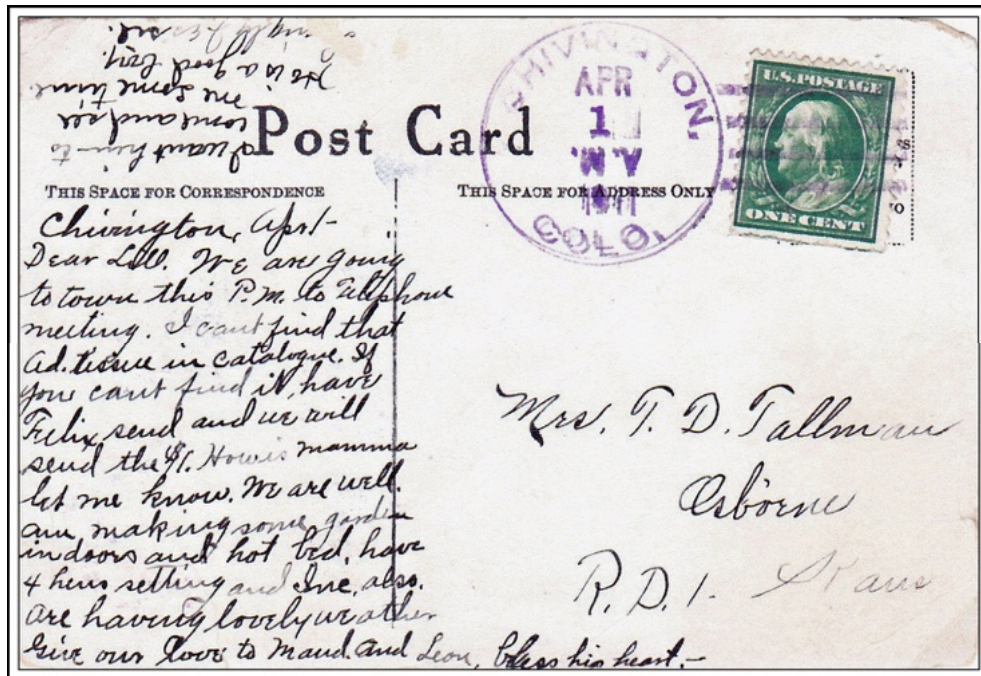 Post Card
THIS SPACE FOR CORRESPONDENCE
THIS SPACE FOR ADDRESS ONLY
CHIVINGTON,
APR
1
A.M.
COLO.
U.S. POSTAGE
ONE CENT
Chivington, Apr. 1-
Dear Lill. We are going
to town this P.M. to Telephone
meeting. I cant find that
ad. tissue in catalogue. If
you cant find it, have
Felix send and we will
send the $1. How is mamma
let me know. We are well.
am making some garden
indoors and hot bed, have
4 hens setting and Inc. also.
are having lovely weather
Give our love to Maud. and Leon, bless his heart.-
I want him to
come and see
me some time
He is a good boy.
Mrs. T. D. Tallman
Osborne
R.D.1. Kans